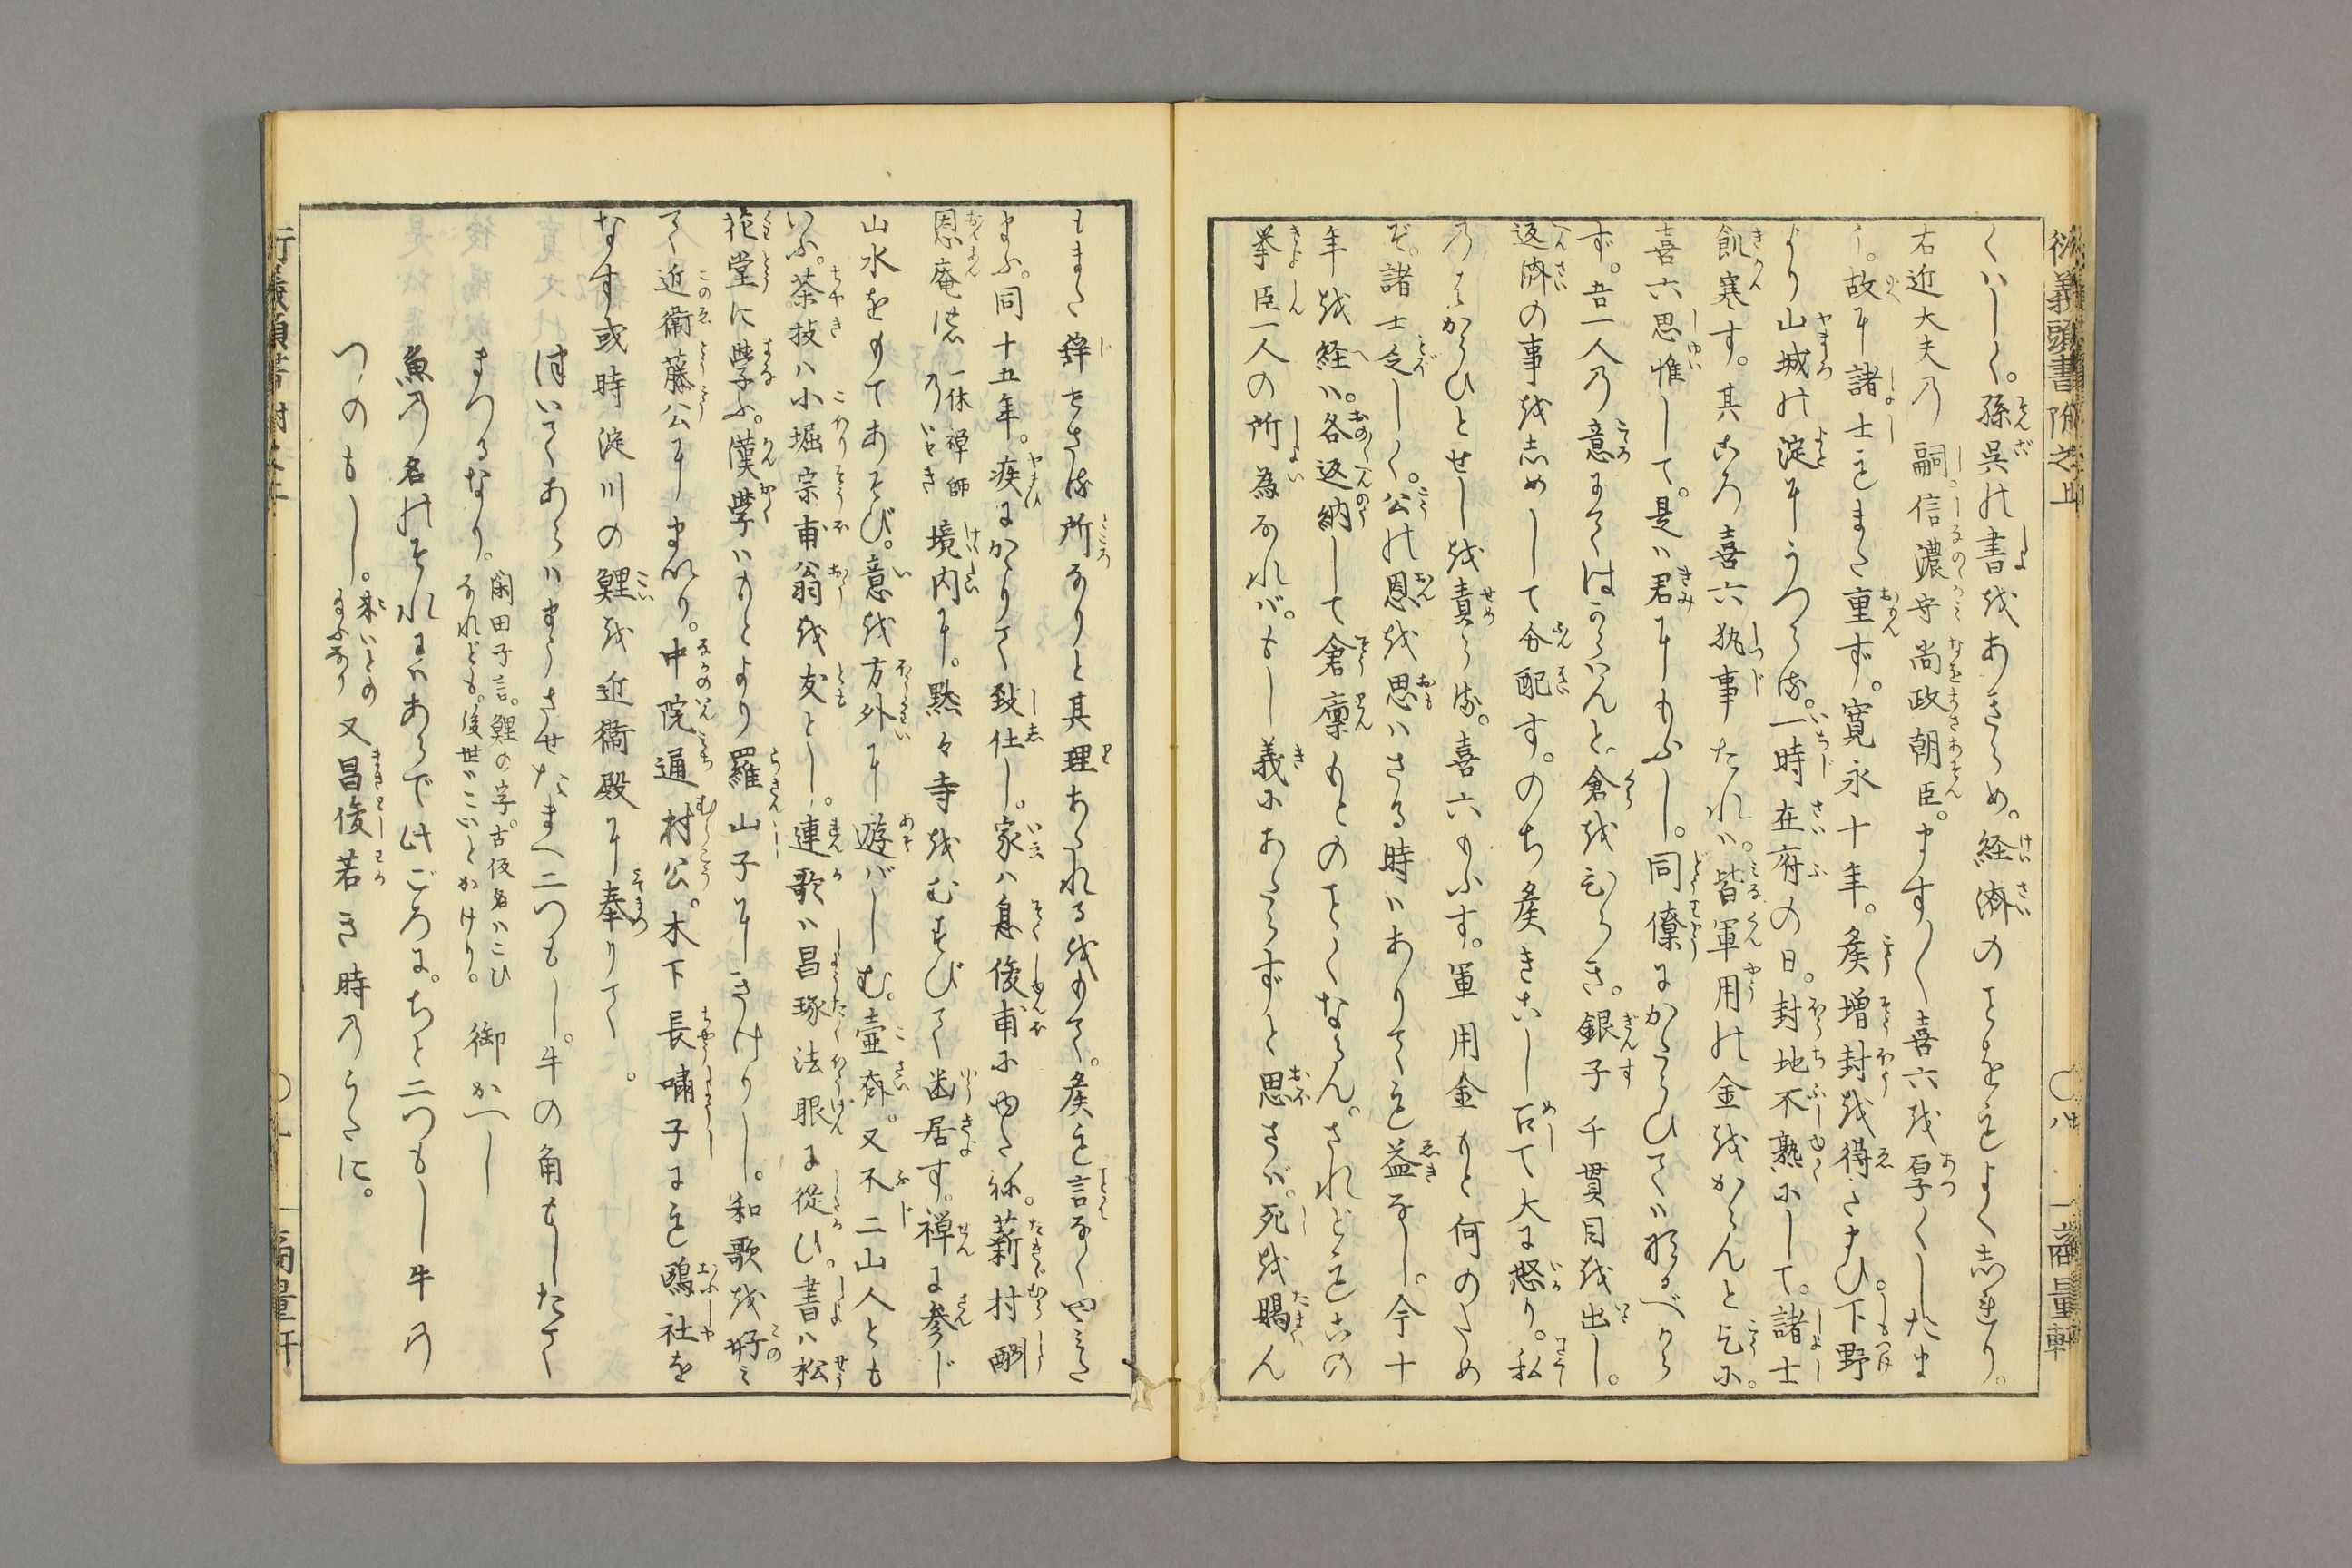 くはしく。孫呉の書をあきらめ。経済のことをもよくしれり。
右近大夫の嗣信濃守尚政朝臣。ますます喜六を厚くしたま
ふ。故に諸士もまた重ず。寛永十年。侯増封を得たまひ。下野
より山城の淀にうつる。一時在府の日。封地不熟にして。諸士
飢寒す。其ころ喜六執事たれば。皆軍用の金をからんと乞に。
喜六思惟して。是は君にもふし。同僚にかたらひては形るべから
ず。吾一人の意にてはからはんと。倉をひらき。銀子千貫目を出し。
返済の事をしめして分配す。のち侯きこし召て大に怒り。私
のはからひとせしを責らる。喜六まふす。軍用金もと何のため
ぞ。諸士乏しく。公の恩を思はざる時はありても益なし。今十
年を経ば。各返納して倉廩もとのごとくならん。されどもこの
挙臣一人の所為なれば。もし義にあたらずと思さば。死を賜ん
もまた辞せざる所なりと其理あたれるをもて。侯も言なくやみた
まふ。同十五年。疾にかゝりて致仕し。家は息俊甫にゆだね。薪村酬
恩庵 一休禅師の 境内に。黙々寺をむすびて幽居す。禅に参じ
山水をもてあそび。意を方外に遊ばしむ。壷斎。又不二山人とも
いふ。茶技は小堀宗甫翁を友とし。連歌は昌琢法眼に従ひ。書は松
花堂に学ぶ。漢学はもとより羅山子にきけりし。和歌を好み
て近衛藤公にまいり。中院通村公。木下長嘯子にも鴎社を
なす或時淀川の鯉を近衛殿に奉りて。
淀いてあらはまうさせたまへ二つもし。牛の角もしたて
まつるなり。 閑田子言。鯉の字。古仮名はこひ
なれども。後世はこいとかけり。 御かへし
魚の名のそれにはあらで此ごろに。ちと二つもし牛の
つのもし。 又昌俊若き時のうたに。
〇 八 一 商量軒